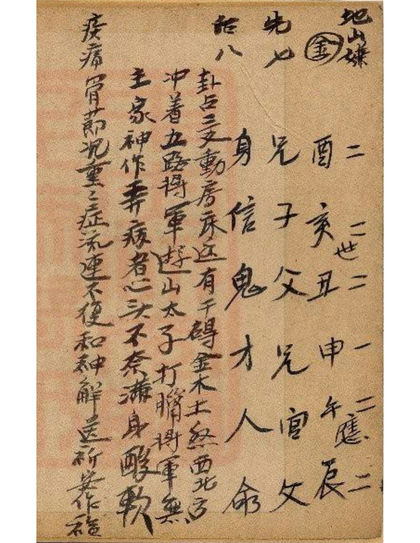 地山謙 二 二世 二 一 二應 二
金 酉 亥 丑 申 午 辰
七 兄 子 父 兄 官 父
八 身 信 鬼 才 人 命
卦占三爻動房床边有干碍金木土煞西北方
冲着五路将軍遊山太子打腦将軍無
主家神作弄病者心头不奈满身酸軟
疾痛骨節沉重之症流連不便和神解送祈安作福